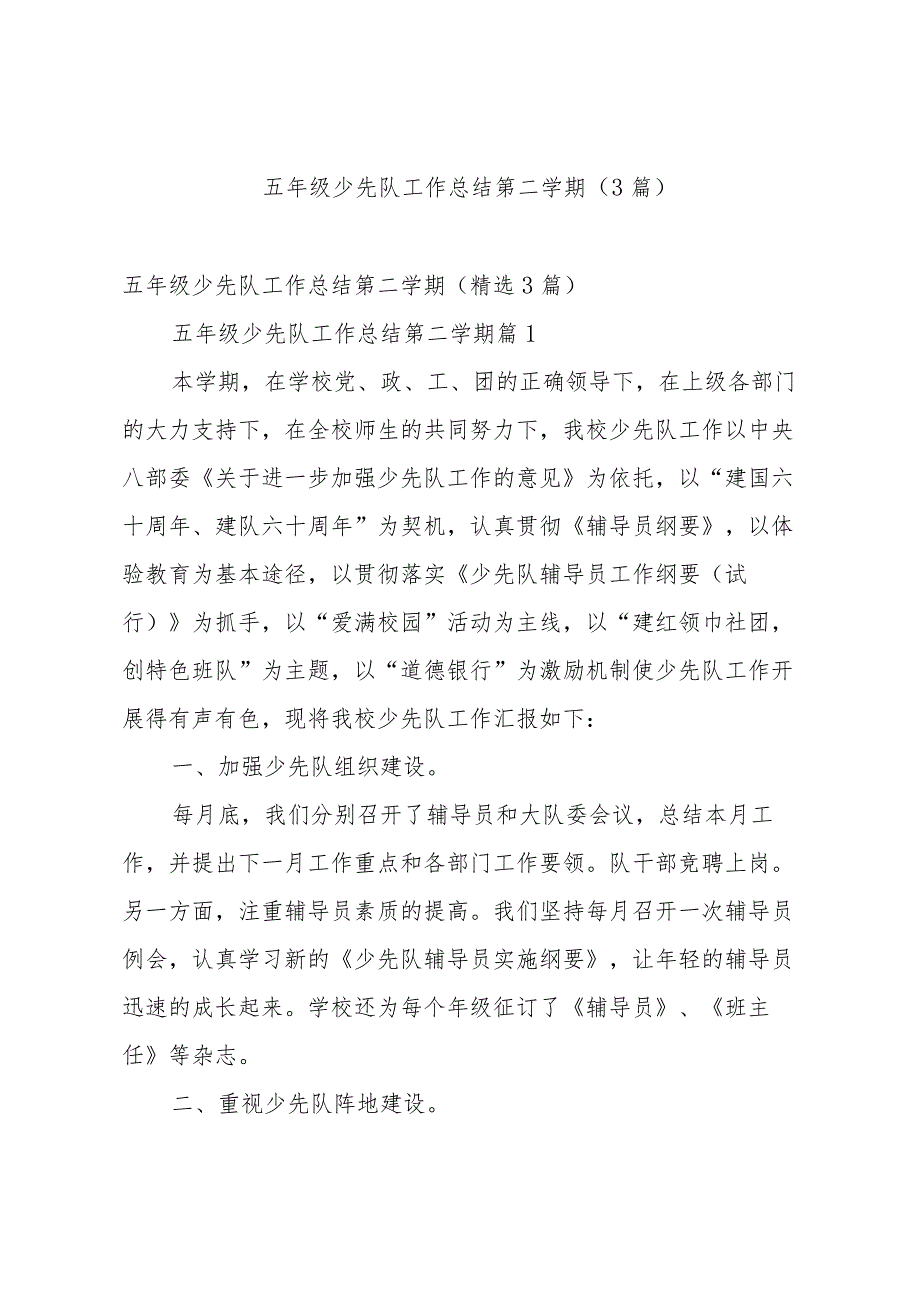 五年级少先队工作总结第二学期（3 篇）
五年级少先队工作总结第二学期（精选 3 篇）
五年级少先队工作总结第二学期篇 1
本学期，在学校党、政、工、团的正确领导下，在上级各部门
的大力支持下，在全校师生的共同努力下，我校少先队工作以中央
八部委《关于进一步加强少先队工作的意见》为依托，以“建国六
十周年、建队六十周年”为契机，认真贯彻《辅导员纲要》，以体
验教育为基本途径，以贯彻落实《少先队辅导员工作纲要（试
行）》为抓手，以“爱满校园”活动为主线，以“建红领巾社团，
创特色班队”为主题，以“道德银行”为激励机制使少先队工作开
展得有声有色，现将我校少先队工作汇报如下：
一、加强少先队组织建设。
每月底，我们分别召开了辅导员和大队委会议，总结本月工
作，并提出下一月工作重点和各部门工作要领。队干部竞聘上岗。
另一方面，注重辅导员素质的提高。我们坚持每月召开一次辅导员
例会，认真学习新的《少先队辅导员实施纲要》，让年轻的辅导员
迅速的成长起来。学校还为每个年级征订了《辅导员》、《班主
任》等杂志。
二、重视少先队阵地建设。